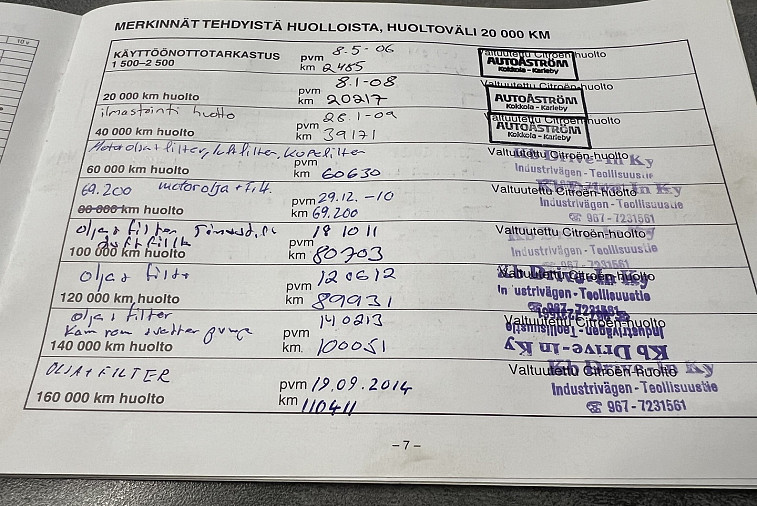 10 v
MERKINNÄT TEHDYISTÄ HUOLLOISTA, HUOLTOVÄLI 20 000 KM
KÄYTTÖÖNOTTOTARKASTUS
1 500–2 500
pvm 8-5-06
km 2465
Valtuutettu Citroën-huolto
AUTOÅSTRÖM
Kokkola - Karleby
20 000 km huolto
pvm 8.1-08
km 20217
Valtuutettu Citroën-huolto
AUTOÅSTRÖM
Kokkola - Karleby
ilmastointi huolto
40 000 km huolto
pvm 28.1-09
km 39171
Valtuutettu Citroën-huolto
AUTOÅSTRÖM
Kokkola - Karleby
Motorolja+filter, luftfilter, kupefilter
60 000 km huolto
pvm
km 60630
Valtuutettu Citroën-huolto
Kb Drive-In Ky
Industrivägen - Teollisuustie
69.200 motorolja + filt.
80 000 km huolto
pvm 29.12.-10
km 69.200
Valtuutettu Citroën-huolto
Kb Drive-In Ky
Industrivägen - Teollisuustie
☏ 967-7231561
olja + filter
luftfilt
100 000 km huolto
pvm 18 10 11
km 80703
Valtuutettu Citroën-huolto
Kb Drive-In Ky
Industrivägen - Teollisuustie
☏ 967-7231561
olja + filter
120 000 km huolto
pvm 120612
km 89931
Valtuutettu Citroën-huolto
Kb Drive-In Ky
Industrivägen - Teollisuustie
☏ 967-7231561
olja + filter
Kamrem vatten pump
140 000 km huolto
pvm 140213
km. 100051
Valtuutettu Citroën-huolto
☏ 967-7231561
Industrivägen - Teollisuustie
Kb Drive-In Ky
OLJA + FILTER
160 000 km huolto
pvm 19.09.2014
km 110411
Valtuutettu Citroën-huolto
Kb Drive-In Ky
Industrivägen - Teollisuustie
☏ 967-7231561
– 7 –